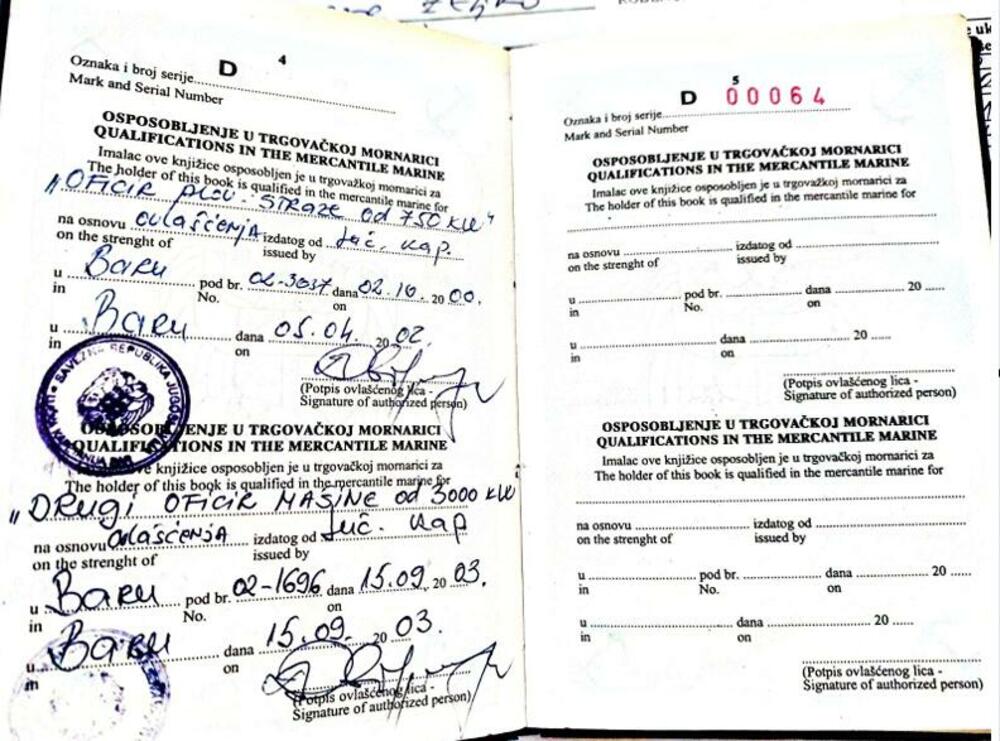 4
Oznaka i broj serije.......... D
Mark and Serial Number
OSPOSOBLJENJE U TRGOVAČKOJ MORNARICI
QUALIFICATIONS IN THE MERCANTILE MARINE
Imalac ove knjižice osposobljen je u trgovažkoj mornarici za
The holder of this book is qualified in the mercantile marine for
"OFICIR PLOV. STRAŽE od 750 KW"
na osnovu ovlašćenja izdatog od Luč. kap.
on the strenght of issued by
u Baru pod br. 02-3037 dana 02.10. 20 00.
in No. on
u Baru dana 05.04. 20 02.
in on
(Potpis ovlašćenog lica -
Signature of authorized person)
SAVEZNA REPUBLIKA
OSPOSOBLJENJE U TRGOVAČKOJ MORNARICI
QUALIFICATIONS IN THE MERCANTILE MARINE
ove knjižice osposobljen je u trgovačkoj mornarici za
The holder of this book is qualified in the mercantile marine for
"DRUGI OFICIR MAŠINE od 3000 KW"
na osnovu Ovlašćenja izdatog od Luč. kap
on the strenght of issued by
u Baru pod br. 02-1696 dana 15.09. 20 03.
in No. on
u Baru dana 15.09. 20 03.
in on
(Potpis ovlašćenog lica -
Signature of authorized person)
5
Oznaka i broj serije.......... D 00064
Mark and Serial Number
OSPOSOBLJENJE U TRGOVAČKOJ MORNARICI
QUALIFICATIONS IN THE MERCANTILE MARINE
Imalac ove knjižice osposobljen je u trgovažkoj mornarici za
The holder of this book is qualified in the mercantile marine for
na osnovu .......... izdatog od ..........
on the strenght of issued by
u .......... pod br. .......... dana .......... 20 ......
in No. on
u .......... dana .......... 20 ......
in on
(Potpis ovlašćenog lica -
Signature of authorized person)
OSPOSOBLJENJE U TRGOVAČKOJ MORNARICI
QUALIFICATIONS IN THE MERCANTILE MARINE
Imalac ove knjižice osposobljen je u trgovačkoj mornarici za
The holder of this book is qualified in the mercantile marine for
na osnovu .......... izdatog od ..........
on the strenght of issued by
u .......... pod br. .......... dana .......... 20 ......
in No. on
u .......... dana .......... 20 ......
in on
(Potpis ovlašćenog lica -
Signature of authorized person)